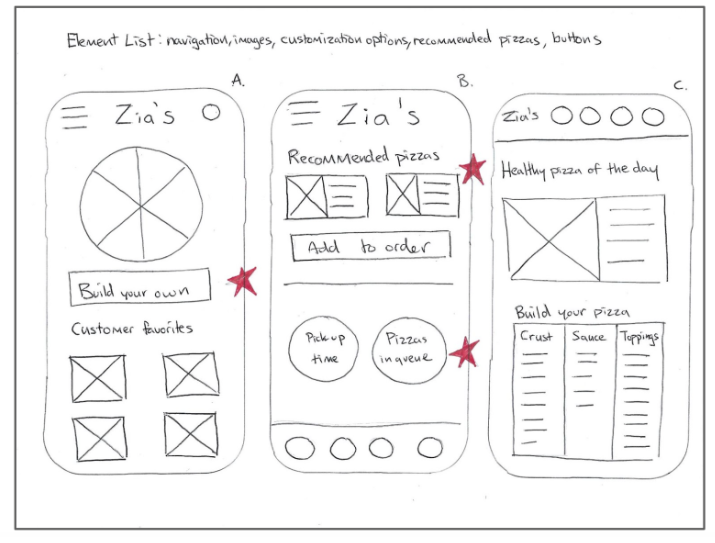 Element List: navigation, images, customization options, recommended pizzas, buttons
A.
Zia's
Build your own
Customer favorites
B.
Zia's
Recommended pizzas
Add to order
Pick up
time
Pizzas
in queue
C.
Zia's
Healthy pizza of the day
Build your pizza
Crust Sauce Toppings